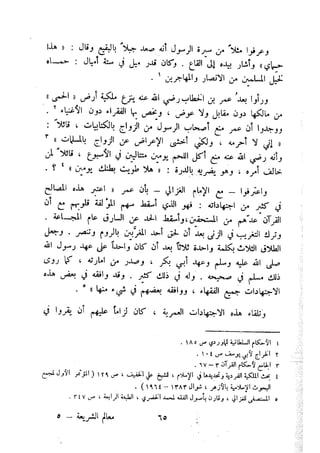 وعرفوا مثلاً من سيرة الرسول أنه صعد جبلاً بالبقيع وقال : « هذا
حماي » وأشار بيده إلى القاع . وكان قدر ميل في ستة أميال : حمـاه
لخيل المسلمين من الأنصار والمهاجرين ١ .
ورأوا بعد عمر بن الخطاب رضي الله عنه ينزع ملكية أرض « الحمى »
من مالكها دون مقابل ولا عوض ، ويخص بها الفقراء دون الأغنياء ٢ .
ووجدوا أن عمر منع أصحاب الرسول من الزواج بالكتابيات ، قائلاً :
« إني لا أحرمه ، ولكني أخشى الإعراض عن الزواج بالمسلمات » ٣
وأنه رضي الله عنه منع أكل اللحم يومين متتاليين في الأسبوع ، قائلاً لمن
خالف أمره ، وهو يضربه بالدرة : « هلا طويت بطنك يومين » ٤ ؟ .
واعترفوا – مع الإمام الغزالي – بأن عمر « اعتبر هذه المصالح
في كثير من اجتهاداته : فهو الذي أسقط سهم المؤلفة قلوبهم مع أن
القرآن عدّهم من المستحقين، وأسقط الحد عن السارق عام المجـاعة .
وترك التغريب في الزنى بعد أن لحق أحد المغرّبين بالروم وتنصر . وجعل
الطلاق الثلاث بكلمة واحدة ثلاثاً بعد أن كان واحداً على عهد رسول الله
صلى الله عليه وسلم وعهد أبي بكر ، وصدر من امارته ، كما روى
ذلك مسلم في صحيحه . وله في ذلك كثير . وقد وافقه في بعض هذه
الاجتهادات جميع الفقهاء ، ووافقه بعضهم في شيء منها » ٥ .
وتلقاء هذه الاجتهادات العمرية ، كان لزاماً عليهم أن يقروا في
١ الأحكام السلطانية للماوردي ص ١٨٥ .
٢ الخراج لأبي يوسف ص ١٠٤ .
٣ الجامع لأحكام القرآن ٣ – ٦٧ .
٤ بحث الملكية الفردية وتحديدها في الإسلام ، للشيخ علي الخفيف ، ص ١٢٩ ( المؤتمر الأول لمجمع
البحوث الإسلامية بالأزهر ، شوال ١٣٨٣ – ١٩٦٤ ) .
٥ المستصفى للغزالي ، وقارن بأصول الفقه لمحمد الخضري ، الطبعة الرابعة ، ص ٣٤٧ .
٦٥
معالم الشريعة – ٥